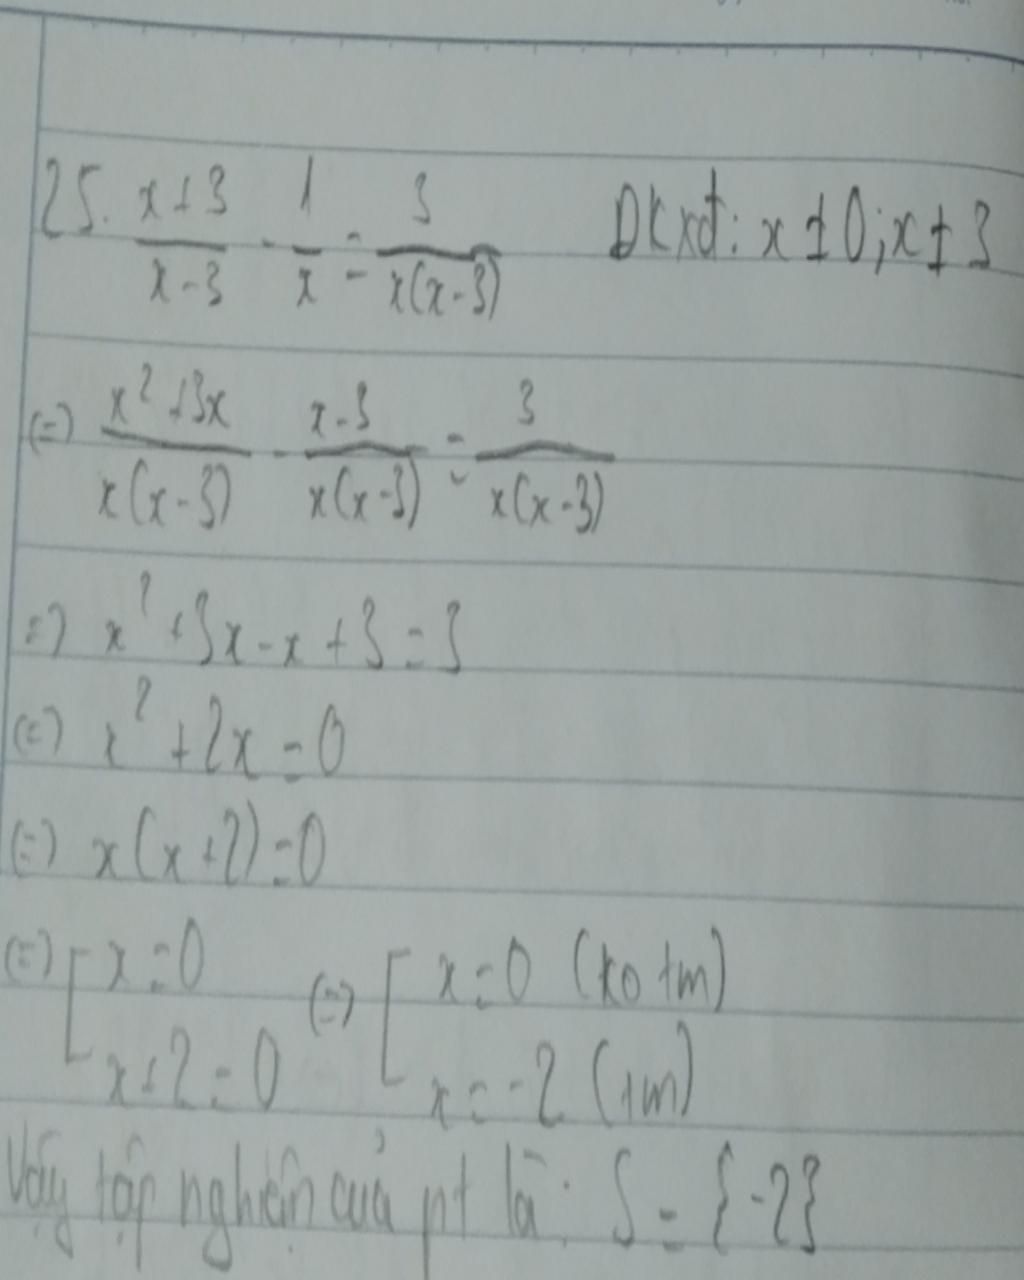 25. (x+3)/(x-3) - 1/x = 3/(x(x-3)) Dkxđ: x ≠ 0; x ≠ 3
(=) (x² + 3x)/(x(x-3)) - (x-3)/(x(x-3)) = 3/(x(x-3))
=) x² + 3x - x + 3 = 3
(=) x² + 2x = 0
(=) x(x+2) = 0
(=) [ x = 0 (=) [ x = 0 (ko tm)
x+2 = 0 x = -2 (tm)
Vậy tập nghiện của pt là: S = {-2}